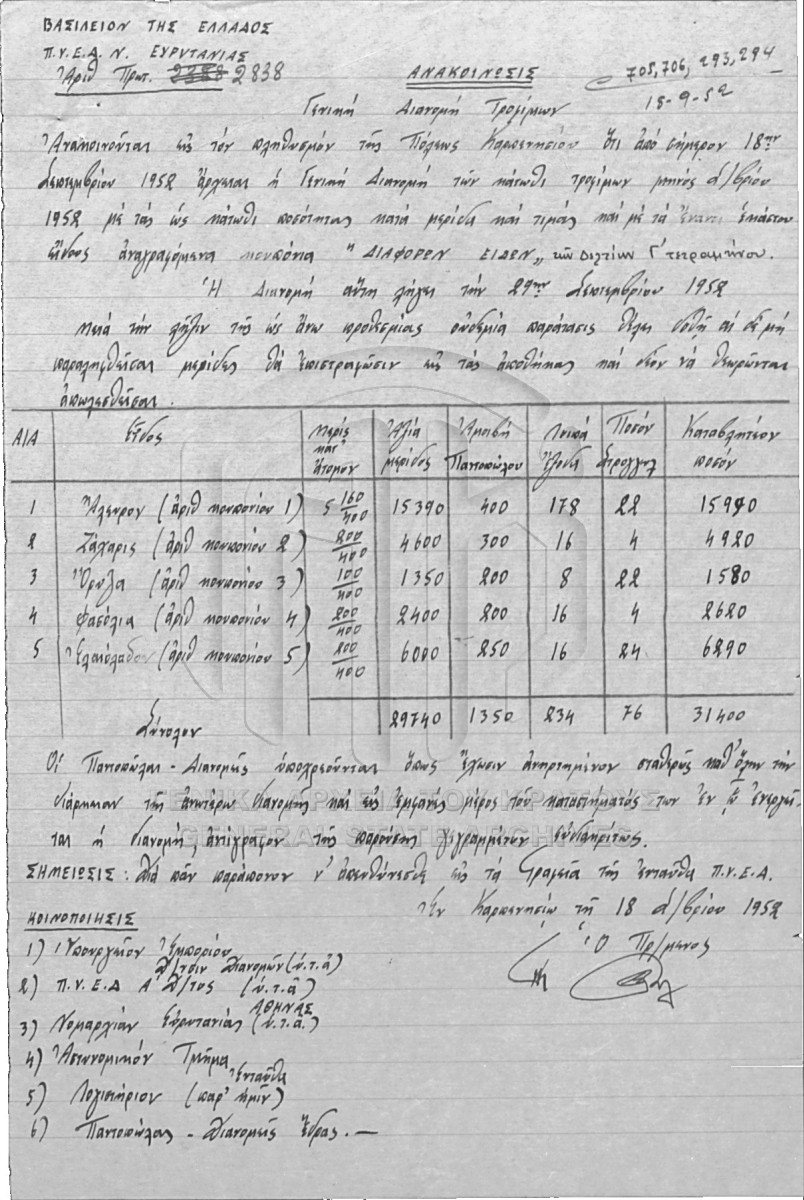 ΒΑΣΙΛΕΙΟΝ ΤΗΣ ΕΛΛΑΔΟΣ
Π.Υ.Ε.Δ. Ν. ΕΥΡΥΤΑΝΙΑΣ
Ἀριθ Πρωτ. 2838
ΑΝΑΚΟΙΝΩΣΙΣ
705, 706, 293, 294
18-9-52
Γενική Διανομή Τροφίμων
Ἀνακοινοῦται εἰς τόν πληθυσμόν τῆς Πόλεως Καρπενησίου ὅτι ἀπό σήμερον 18ην
Σεπτεμβρίου 1952 ἄρχεται ἡ Γενική Διανομή τῶν κάτωθι τροφίμων μηνός Σ/βρίου
1952 μέ τάς ὡς κάτωθι ποσότητας κατά μερίδα καί τιμάς καί μέ τά ἔναντι ἑκάστου
εἴδους ἀναγραφόμενα κουπόνια " ΔΙΑΦΟΡΩΝ ΕΙΔΩΝ „ τῶν Δελτίων Γ' τετραμήνου.
Ἡ Διανομή αὕτη λήγει τήν 29ην Σεπτεμβρίου 1952
Μετά τήν λῆξιν τῆς ὡς ἄνω προθεσμίας οὐδεμία παράτασις θέλει δοθῇ αἱ δέ μή
παραληφθεῖσαι μερίδες θά ἐπιστραφῶσιν εἰς τάς ἀποθήκας καί δέον νά θεωρῶνται
ἀπωλεσθεῖσαι.
Α/Α Εἶδος Μερίς κατ' ἄτομον Ἀξία μερίδος Ἀμοιβή Παντοπώλου Λοιπά Ἔξοδα Ποσόν Στρογγυλ Καταβλητέον ποσόν
1 Ἄλευρον (ἀριθ κουπονίου 1) 5 160/400 15390 400 178 22 15990
2 Ζάχαρις (ἀριθ κουπονίου 2) 200/400 4600 300 16 4 4920
3 Ὄρυζα (ἀριθ κουπονίου 3) 100/400 1350 200 8 22 1580
4 Φασόλια (ἀριθ κουπονίου 4) 200/400 2400 200 16 4 2620
5 Ἐλαιόλαδον (ἀριθ κουπονίου 5) 200/400 6000 250 16 24 6290
Σύνολον 29740 1350 234 76 31400
Οἱ Παντοπῶλαι - Διανομεῖς ὑποχρεοῦνται ὅπως ἔχωσιν ἀνηρτημένον σταθερῶς καθ' ὅλην τήν
διάρκειαν τῆς ἀνωτέρω διανομῆς καί εἰς ἐμφανές μέρος τοῦ καταστήματός των ἐν ᾧ ἐνεργεῖ-
ται ἡ διανομή, ἀντίγραφον τῆς παρούσης γεγραμμένον εὐδιακρίτως.
ΓΕΝΙΚΑ ΑΡΧΕΙΑ ΤΟΥ ΚΡΑΤΟΥΣ
GENERAL STATE ARCHIVES
ΣΗΜΕΙΩΣΙΣ: Διά πᾶν παράπονον ν' ἀπευθύνεσθε εἰς τά Γραφεῖα τῆς ἐνταῦθα Π.Υ.Ε.Δ.
Ἐν Καρπενησίῳ τῇ 18 Σ/βρίου 1952
ΚΟΙΝΟΠΟΙΗΣΙΣ
Ὁ Πρ/μενος
1) Ὑπουργεῖον Ἐμπορίου
Δ/τσιν Διανομῶν (ὑ.τ.ἀ)
2) Π.Υ.Ε.Δ Α' Δ/τος (ὑ.τ.ἀ)
ΑΘΗΝΑΣ
3) Νομαρχίαν Εὐρυτανίας (ὑ.τ.ἀ.)
4) Ἀστυνομικόν Τμῆμα
Ἐνταῦθα
5) Λογιστήριον (παρ' ἡμῖν)
6) Παντοπώλας - Διανομεῖς Ἕδρας. —